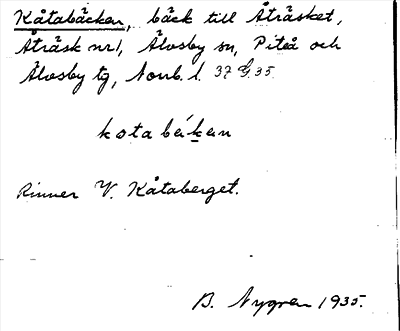 Kåtabäcken, bäck till Åträsket,
Åträsk nr 1, Älvsby sn, Piteå och
Älvsby tg, Norrb. l. 37 G. 35
kotabä́ḵen
Rinner V. Kåtaberget.
B. Nygren 1935.